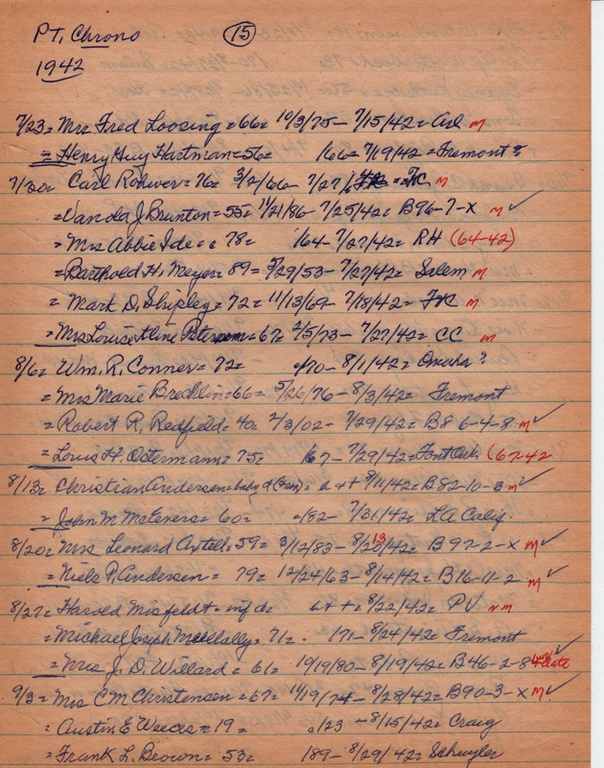 PT. Chrono (15)
1942
7/23 = Mrs Fred Loosing = 66 = 10/3/75 - 7/15/42 = Arl m
= Henry Guy Hartman = 56 = /66 = 7/19/42 = Fremont ?
7/30 = Carl Rohwer = 76 = 3/2/66 - 7/27/ = FC m
= Vanda J. Brunton = 55 = 11/21/86 - 7/25/42 = B96-7-X m ✓
= Mrs Abbie Ide = 78 = /64 - 7/27/42 = RH (64-42)
= Barthold H. Meyer = 89 = 5/29/53 - 7/27/42 = Salem m
= Mark D. Shipley = 72 = 11/13/69 - 7/18/42 = FC m
= Mrs Louise Aline Peterson = 67 = 2/5/73 - 7/27/42 = CC m
8/6 = Wm. R. Conner = 72 = /70 - 8/1/42 = Omaha ?
= Mrs Marie Brechlin = 66 = 5/26/76 - 8/3/42 = Fremont
= Robert R. Redfield = 40 = 2/3/02 - 7/29/42 = B86-4-8 m ✓
= Louis H. Ostermann = 75 = /67 - 7/29/42 = Fort (67-42
8/13 = Christian Andersen = baby of = b + t 8/11/42 = B82-10-3 m ✓
= John M McEvers = 60 = /82 - 7/31/42 = LA Calif.
8/20 = Mrs Leonard Axtell = 59 = 3/12/83 - 8/13/42 = B97-2-X m ✓
= Niels P. Andersen = 79 = 12/24/63 - 8/14/42 = B16-11-2 m ✓
8/27 = Harold Misfeldt = inf d = b + t = 8/22/42 = PV nm
= Michael Joseph = 71 = /71 - 8/24/42 = Fremont
= Mrs J. D. Willard = 61 = 10/19/80 - 8/19/42 = B46-2-8 date ✓
9/3 = Mrs C M Christensen = 67 = 11/19/74 - 8/28/42 = B90-3-X m ✓
= Austin E = 19 = /23 - 8/15/42 = Craig
= Frank L. Brown = 53 = 189 - 8/29/42 = Schuyler